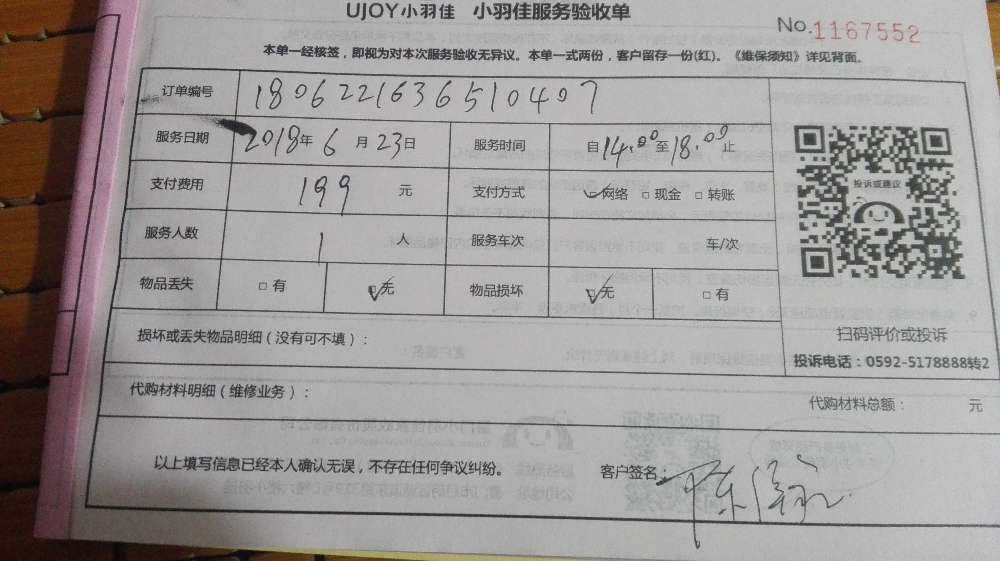 UJOY小羽佳 小羽佳服务验收单
No.1167552
本单一经核签，即视为对本次服务验收无异议。本单一式两份，客户留存一份(红)。《维保须知》详见背面。
订单编号 1806221636510407
服务日期 2018年 6 月 23日 服务时间 自14:00至18:00止
支付费用 199 元 支付方式 ☑网络 □现金 □转账
投诉或建议
服务人数 1 人 服务车次 车/次
物品丢失 □有 ☑无 物品损坏 ☑无 □有
扫码评价或投诉
损坏或丢失物品明细（没有可不填）：
投诉电话：0592-5178888转2
代购材料明细（维修业务）：
代购材料总额： 元
以上填写信息已经本人确认无误，不存在任何争议纠纷。 客户签名